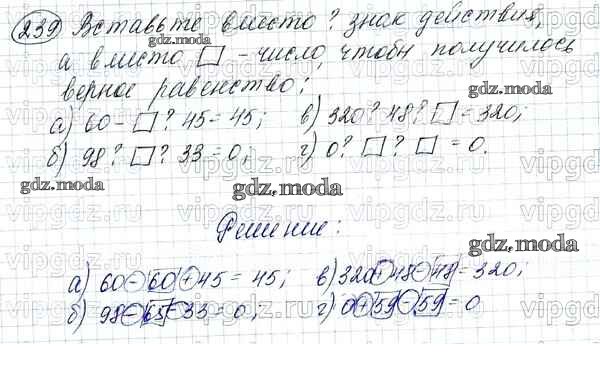 239 Вставьте вместо ? знак действия,
а вместо □ - число, чтобы получилось
верное равенство:
gdz.moda
gdz.moda
а) 60 - □ ? 45 = 45; в) 320 ? 48 ? □ = 320;
б) 98 ? □ ? 33 = 0; г) 0 ? □ ? □ = 0.
gdz.moda
gdz.moda
gdz.moda
Решение:
gdz.moda
а) 60 - 60 + 45 = 45; в) 320 + 48 - 48 = 320;
б) 98 - 65 - 33 = 0; г) 0 + 59 - 59 = 0
vipgdz.ru